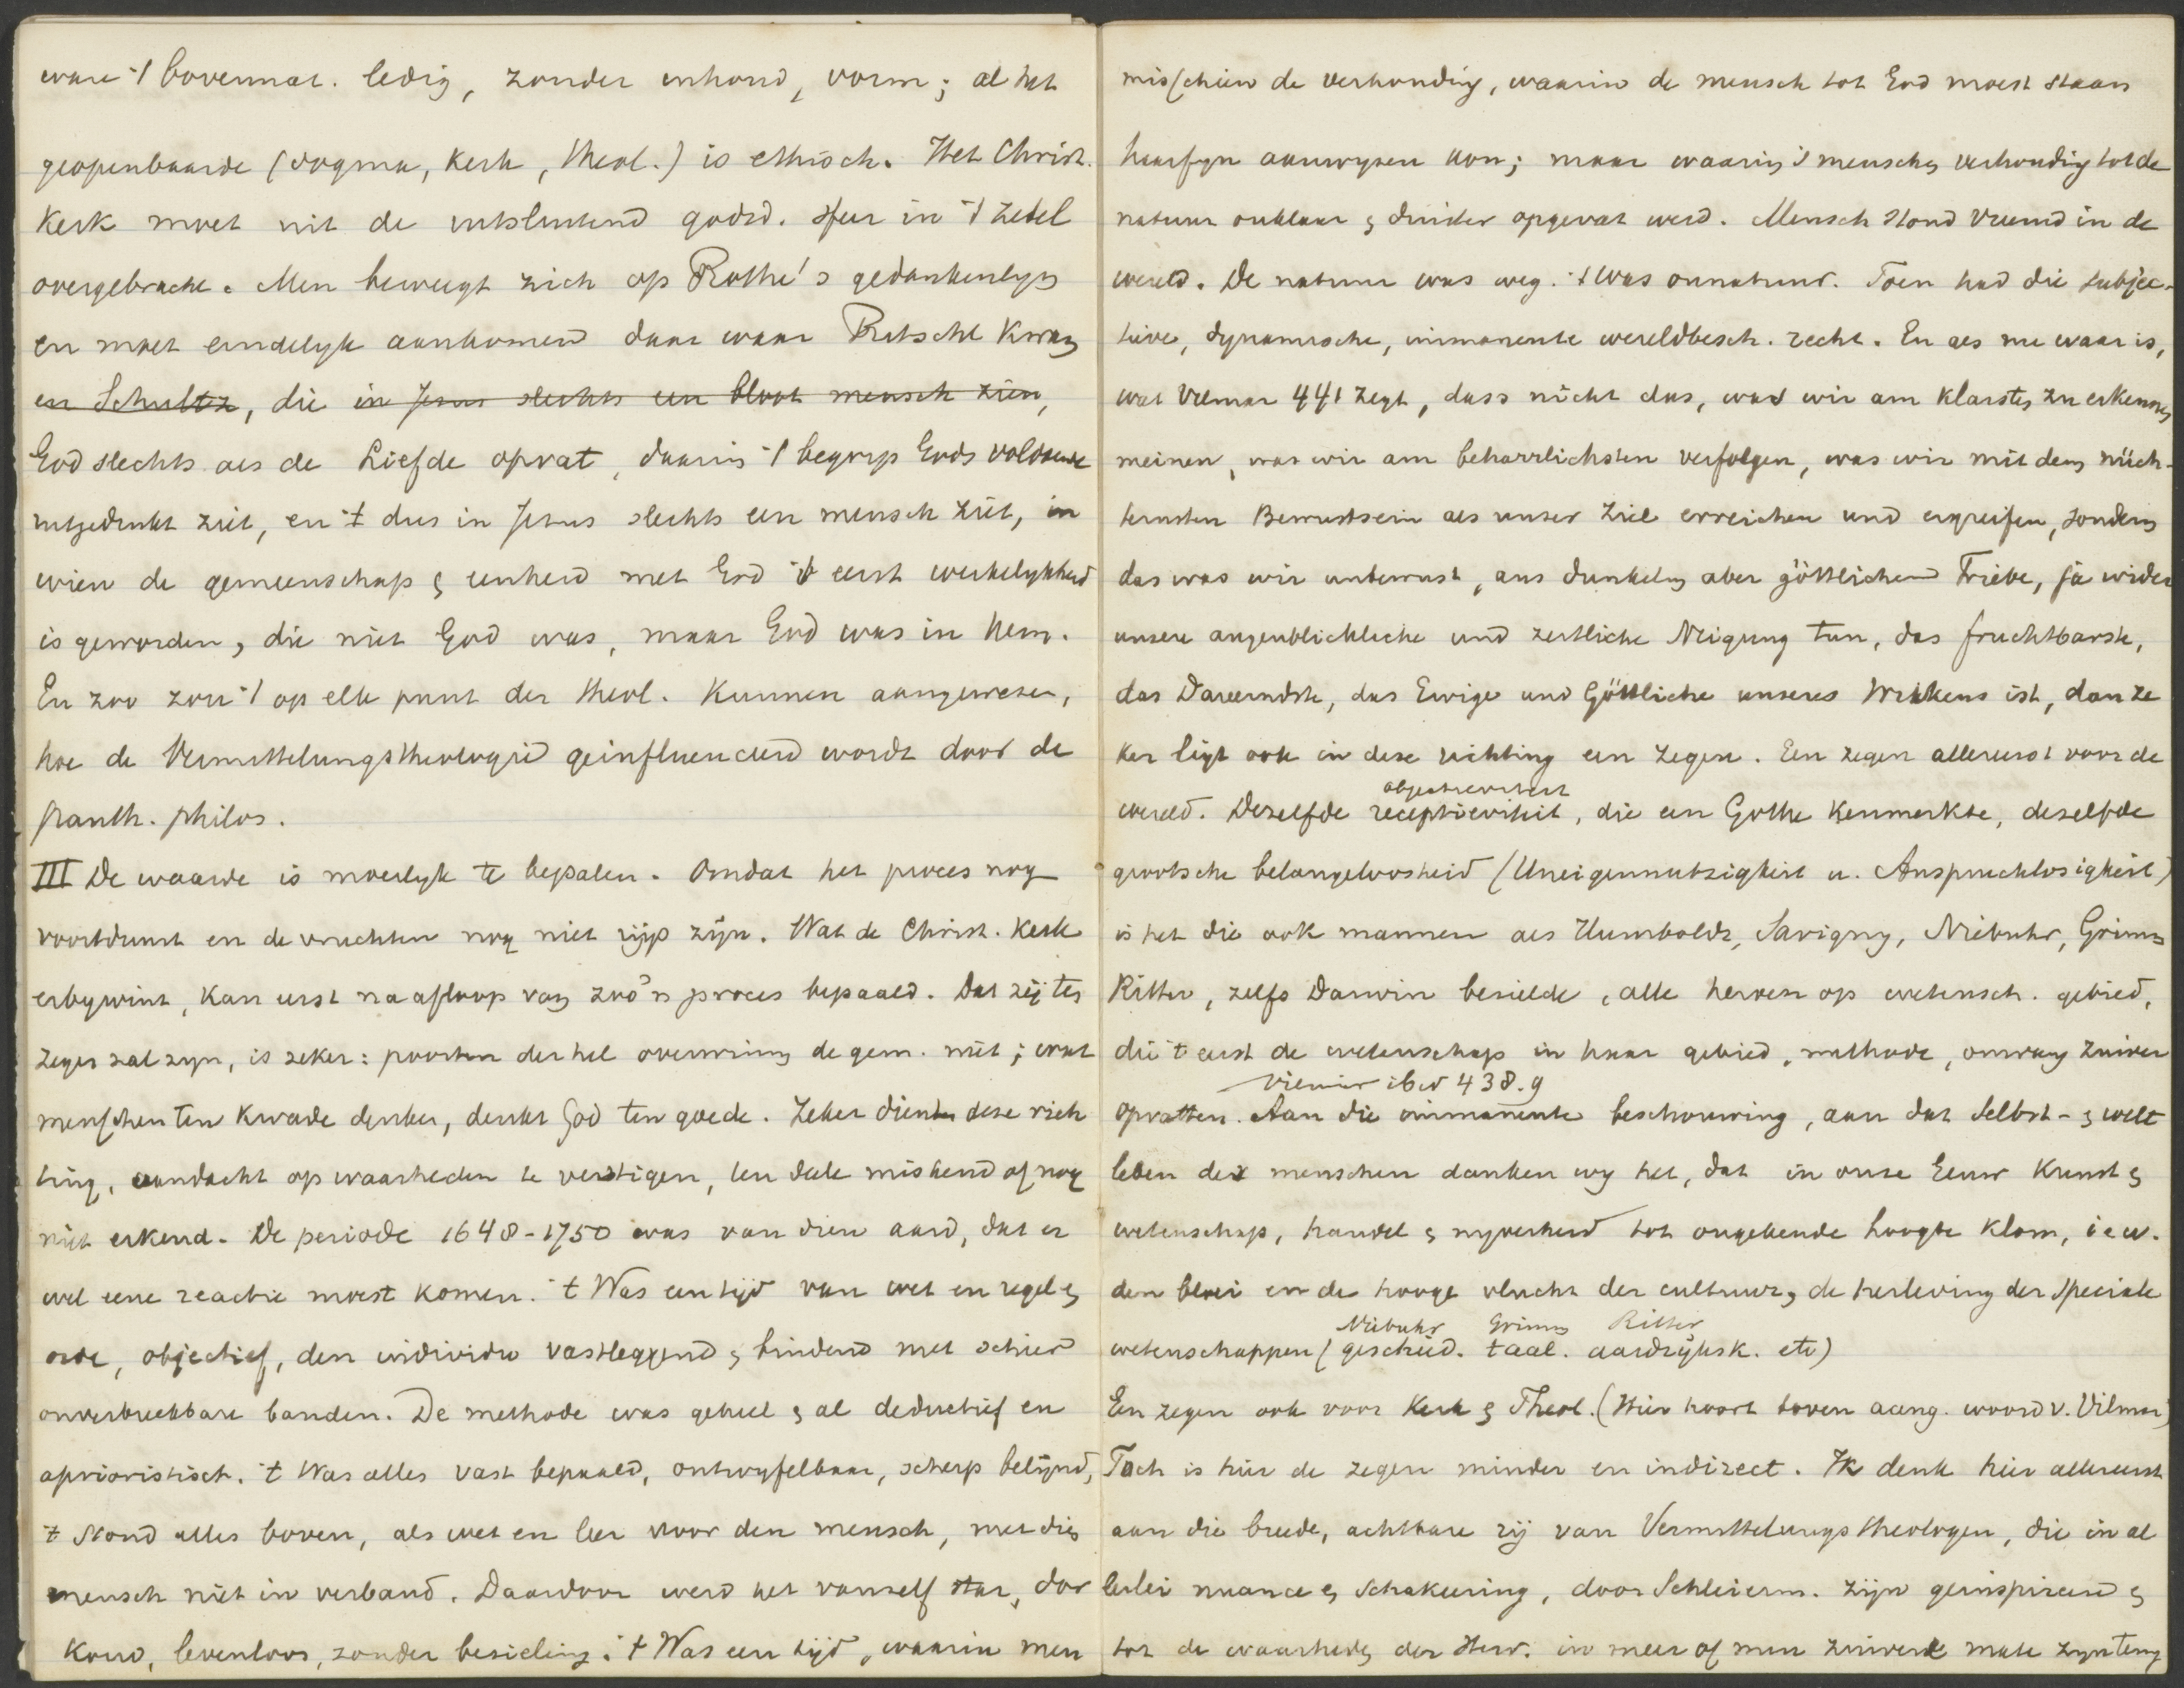 ware 't bovennat. ledig, zonder inhoud, vorm; al het
geopenbaarde (dogma, kerk, theol.) is ethisch. Het Christ.
Kerk moet uit de uitsluitend godsd. sfeer in 't zedel
overgebracht. Men beweegt zich op Rothe's gedankenlijn
en moet eindelyk aankomen daar waar Ritschl kwam
en Schultz, die in Jezus slechts een bloot mensch zien,
God slechts als de Liefde opvat, daarin 't begrip Gods voldoende
uitgedrukt ziet, en 't dus in Jezus slechts een mensch ziet, in
wien de gemeenschap & eenheid met God 't eerst werkelykheid
is geworden, die niet God was, maar God was in hem.
En zoo zou 't op elk punt der theol. kunnen aangewezen,
hoe de Vermittelungstheologie geinfluenceerd wordt door de
panth. philos.
III De waarde is moeilyk te bepalen. Omdat het proces nog
voortduurt en de vruchten nog niet rijp zijn. Wat de Christ. Kerk
erbywint, kan eerst na afloop van zoo'n proces bepaald. Dat zij ten
zegen zal zyn, is zeker: poorten der hel overwinnen de gem. niet; wat
menschen ten kwade denken, denkt God ten goede. Zeker diende deze rich
ting, aandacht op waarheden te vestigen, ten deele miskend of nog
niet erkend. De periode 1648-1750 was van dien aard, dat er
wel eene reactie moest komen. 't Was een tijd van wet en regel &
orde, objectief, den individu vastleggend & bindend met schier
onverbreekbare banden. De methode was geheel & al deductief en
aprioristisch. 't Was alles vast bepaald, ontwyfelbaar, scherp belijnd,
't Stond alles boven, als wet en leer voor den mensch, met dien
mensch niet in verband. Daardoor werd het vanzelf star, dor
koud, levenloos, zonder bezieling. 't Was een tijd, waarin men
misschien de verhouding, waarin de mensch tot God moest staan
haarfyn aanwyzen kon; maar waarin 's menschen verhouding tot de
natuur onklaar & duister opgevat werd. Mensch stond vreemd in de
wereld. De natuur was weg. 't was onnatuur. Toen had die subjec-
tieve, dynamische, immanente wereldbesch. recht. En als nu waar is,
wat Vilmar 441 zegt, dass nicht das, was wir am klarsten zu erkennen
meinen, was wir am beharrlichsten verfolgen, was wir mit dem nüch-
ternsten Bewustsein als unser Ziel erreichen und ergreifen, sondern
das was wir unbewust, aus dunkelm aber göttlichem Triebe, ja wider
unsere augenblickliche und zeitliche Neigung tun, das fruchtbarste,
das Dauerndste, das Ewige und Göttliche unseres Wirkens ist, dan ze
ker ligt ook in deze richting een zegen. Een zegen allereerst voor de
objectieviteit
wereld. Dezelfde receptieviteit, die een Göthe kenmerkte, dezelfde
grootsche belangeloosheid (Uneigennutzigkeit u. Anspruchlosigkeit)
is het die ook mannen als Humboldt, Savigny, Niebuhr, Grimm
Ritter, zelfs Darwin bezielde, alle heroen op wetensch. gebied,
die 't eerst de wetenschap in haar gebied, methode, omvang zuiver
Vilmar ibid 438.9
opvatten. Aan die immanente beschouwing, aan dat Selbst- & welt
leben der menschen danken wy het, dat in onze Eeuw Kunst &
wetenschap, handel & nyverheid tot ongekende hoogte klom, i e w.
den bloei en de hooge vlucht der cultuur, de herleving der speciale
Niebuhr Grimm Ritter
wetenschappen (geschied. taal. aardrijksk. etc)
Een zegen ook voor Kerk & Theol. (Hier hoort boven aang. woord v. Vilmar)
Toch is hier de zegen minder en indirect. Ik denk hier allereerst
aan die breede, achtbare rij van Vermittelungstheologen, die in al
lerlei nuance & schakeering, door Schleierm. zijn geinspireerd &
tot de waarheid der Herv. in meer of min zuivere mate zyn terug